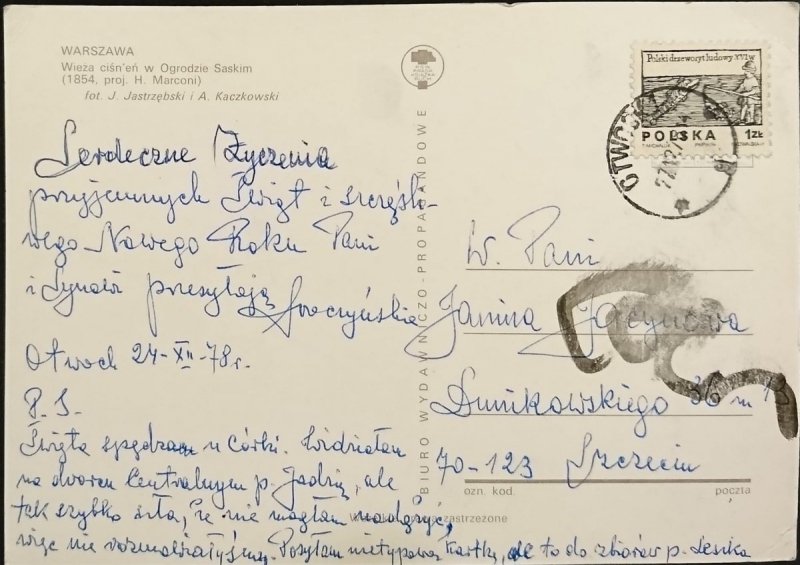 WARSZAWA
Wieża ciśn'eń w Ogrodzie Saskim
(1854, proj. H. Marconi)
fot. J. Jastrzębski i A. Kaczkowski
Serdeczne Życzenia
przyjemnych Świąt i szczęśli-
wego Nowego Roku Pani
i Synowi przesyłają
Otwock 24-XII-78 r.
P.S.
Święta spędzam u Córki. Widziałam
na dworcu Centralnym p. Jadzię, ale
tak szybko szła, że nie mogłam nadążyć,
więc nie rozmawiałyśmy. Posyłam nietypową kartkę, ale to do zbiorów p. Leszka
BIURO WYDAWNICZO-PROPAGANDOWE
Polski drzeworyt ludowy XVI w
POLSKA 1ZŁ
OTWOCK 1
W. Pani
Janina
Dunikowskiego 36 m
70-123 Szczecin
ozn. kod. poczta
zastrzeżone